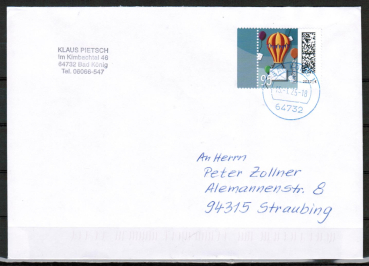 KLAUS PIETSCH
Im Kimbachtal 46
64732 Bad König
Tel. 06068-647
95
64732
An Herrn
Peter Zollner
Alemannenstr. 8
94315 Straubing